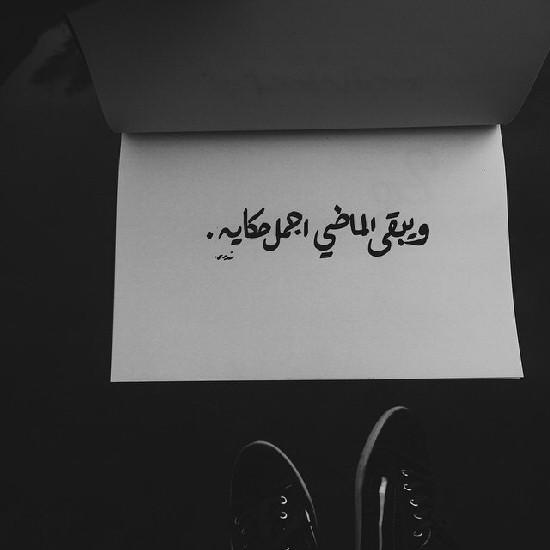 ويبقى الماضي اجمل حكايه .